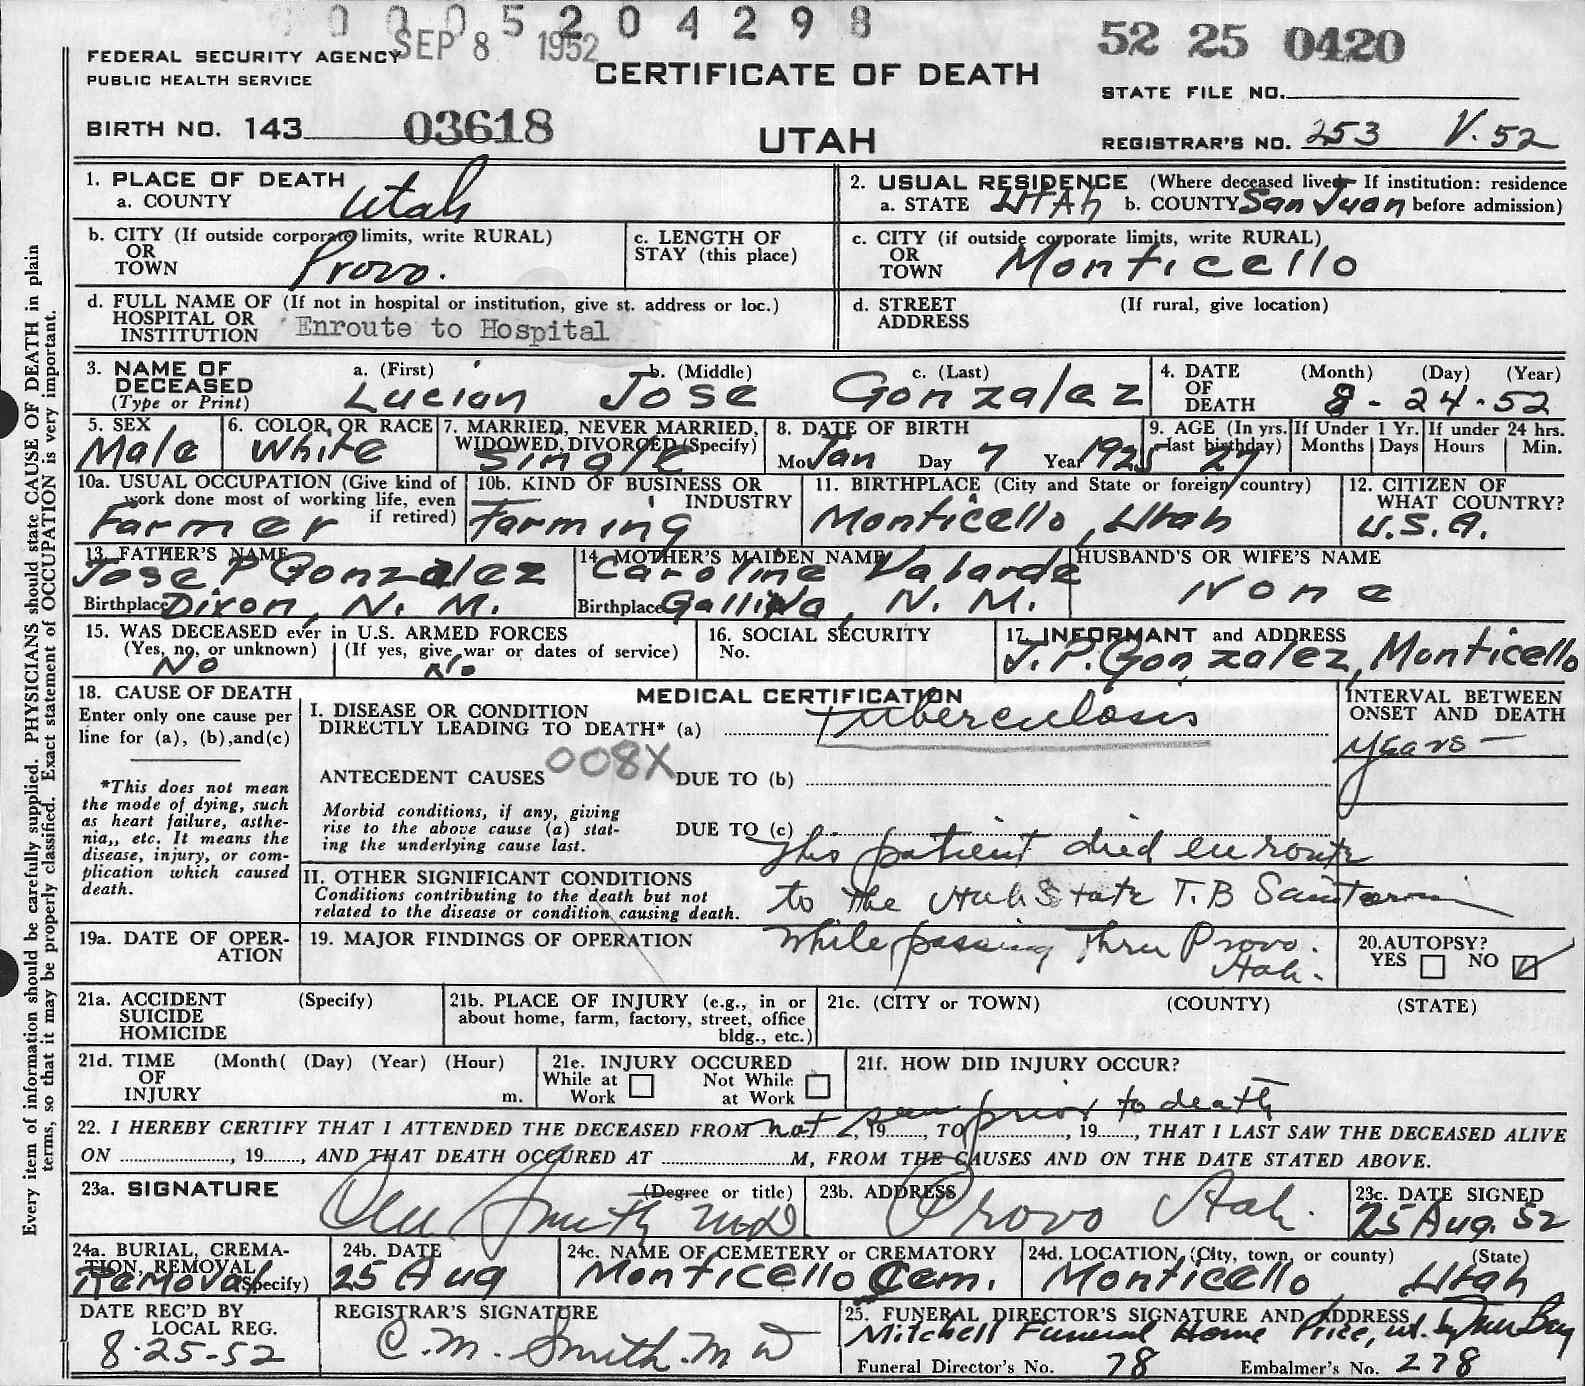 0 0 0 5 2 0 4 2 9 8
SEP 8 1952
52 25 0420
FEDERAL SECURITY AGENCY
PUBLIC HEALTH SERVICE
CERTIFICATE OF DEATH
STATE FILE NO.
BIRTH NO. 143 03618
UTAH
REGISTRAR'S NO. 253 V. 52
Every item of information should be carefully supplied. PHYSICIANS should state CAUSE OF DEATH in plain
terms, so that it may be properly classified. Exact statement of OCCUPATION is very important.
1. PLACE OF DEATH
a. COUNTY Utah
2. USUAL RESIDENCE (Where deceased lived. If institution: residence
a. STATE Utah b. COUNTY San Juan before admission)
b. CITY (If outside corporate limits, write RURAL)
OR
TOWN Provo.
c. LENGTH OF
STAY (this place)
c. CITY (if outside corporate limits, write RURAL)
OR
TOWN Monticello
d. FULL NAME OF (If not in hospital or institution, give st. address or loc.)
HOSPITAL OR
INSTITUTION Enroute to Hospital
d. STREET (If rural, give location)
ADDRESS
3. NAME OF DECEASED
(Type or Print)
a. (First) b. (Middle) c. (Last)
Lucian Jose Gonzalez
4. DATE OF DEATH (Month) (Day) (Year)
8-24-52
5. SEX
Male
6. COLOR OR RACE
White
7. MARRIED, NEVER MARRIED,
WIDOWED, DIVORCED (Specify)
Single
8. DATE OF BIRTH
Mo Jan Day 7 Year 1925
9. AGE (In yrs. last birthday) 27
If Under 1 Yr. Months Days
If under 24 hrs. Hours Min.
10a. USUAL OCCUPATION (Give kind of
work done most of working life, even
if retired)
Farmer
10b. KIND OF BUSINESS OR
INDUSTRY
Farming
11. BIRTHPLACE (City and State or foreign country)
Monticello, Utah
12. CITIZEN OF
WHAT COUNTRY?
U.S.A.
13. FATHER'S NAME
Jose P Gonzalez
Birthplace Dixon, N. M.
14. MOTHER'S MAIDEN NAME
Caroline Valarde
Birthplace Gallina, N. M.
HUSBAND'S OR WIFE'S NAME
None
15. WAS DECEASED ever in U.S. ARMED FORCES
(Yes, no, or unknown) (If yes, give war or dates of service)
No No
16. SOCIAL SECURITY
No.
17. INFORMANT and ADDRESS
J.P. Gonzalez, Monticello
18. CAUSE OF DEATH
Enter only one cause per
line for (a), (b), and (c)
*This does not mean
the mode of dying, such
as heart failure, asthe-
nia,, etc. It means the
disease, injury, or com-
plication which caused
death.
MEDICAL CERTIFICATION
I. DISEASE OR CONDITION
DIRECTLY LEADING TO DEATH* (a) Tuberculosis
INTERVAL BETWEEN
ONSET AND DEATH
years
ANTECEDENT CAUSES 008X DUE TO (b)
Morbid conditions, if any, giving
rise to the above cause (a) stat-
ing the underlying cause last.
DUE TO (c)
This patient died en route
II. OTHER SIGNIFICANT CONDITIONS
Conditions contributing to the death but not
related to the disease or condition causing death.
to the Utah State T.B
while passing thru Provo.
Utah.
19a. DATE OF OPER-
ATION
19. MAJOR FINDINGS OF OPERATION
20. AUTOPSY?
YES NO
21a. ACCIDENT (Specify)
SUICIDE
HOMICIDE
21b. PLACE OF INJURY (e.g., in or
about home, farm, factory, street, office
bldg., etc.)
21c. (CITY or TOWN) (COUNTY) (STATE)
21d. TIME (Month( (Day) (Year) (Hour)
OF
INJURY m.
21e. INJURY OCCURED
While at Work Not While at Work
21f. HOW DID INJURY OCCUR?
not seen prior to death
22. I HEREBY CERTIFY THAT I ATTENDED THE DECEASED FROM , 19 , TO , 19 , THAT I LAST SAW THE DECEASED ALIVE
ON , 19 , AND THAT DEATH OCCURED AT M, FROM THE CAUSES AND ON THE DATE STATED ABOVE.
23a. SIGNATURE (Degree or title)
Smith MD
23b. ADDRESS
Provo Utah.
23c. DATE SIGNED
25 Aug. 52
24a. BURIAL, CREMA-
TION, REMOVAL
(Specify)
Removal
24b. DATE
25 Aug
24c. NAME OF CEMETERY or CREMATORY
Monticello Cem.
24d. LOCATION (City, town, or county) (State)
Monticello Utah
DATE REC'D BY
LOCAL REG.
8-25-52
REGISTRAR'S SIGNATURE
C.M. Smith. M D
25. FUNERAL DIRECTOR'S SIGNATURE AND ADDRESS
Mitchell Funeral Home Price, ut. by
Funeral Director's No. 78 Embalmer's No. 278